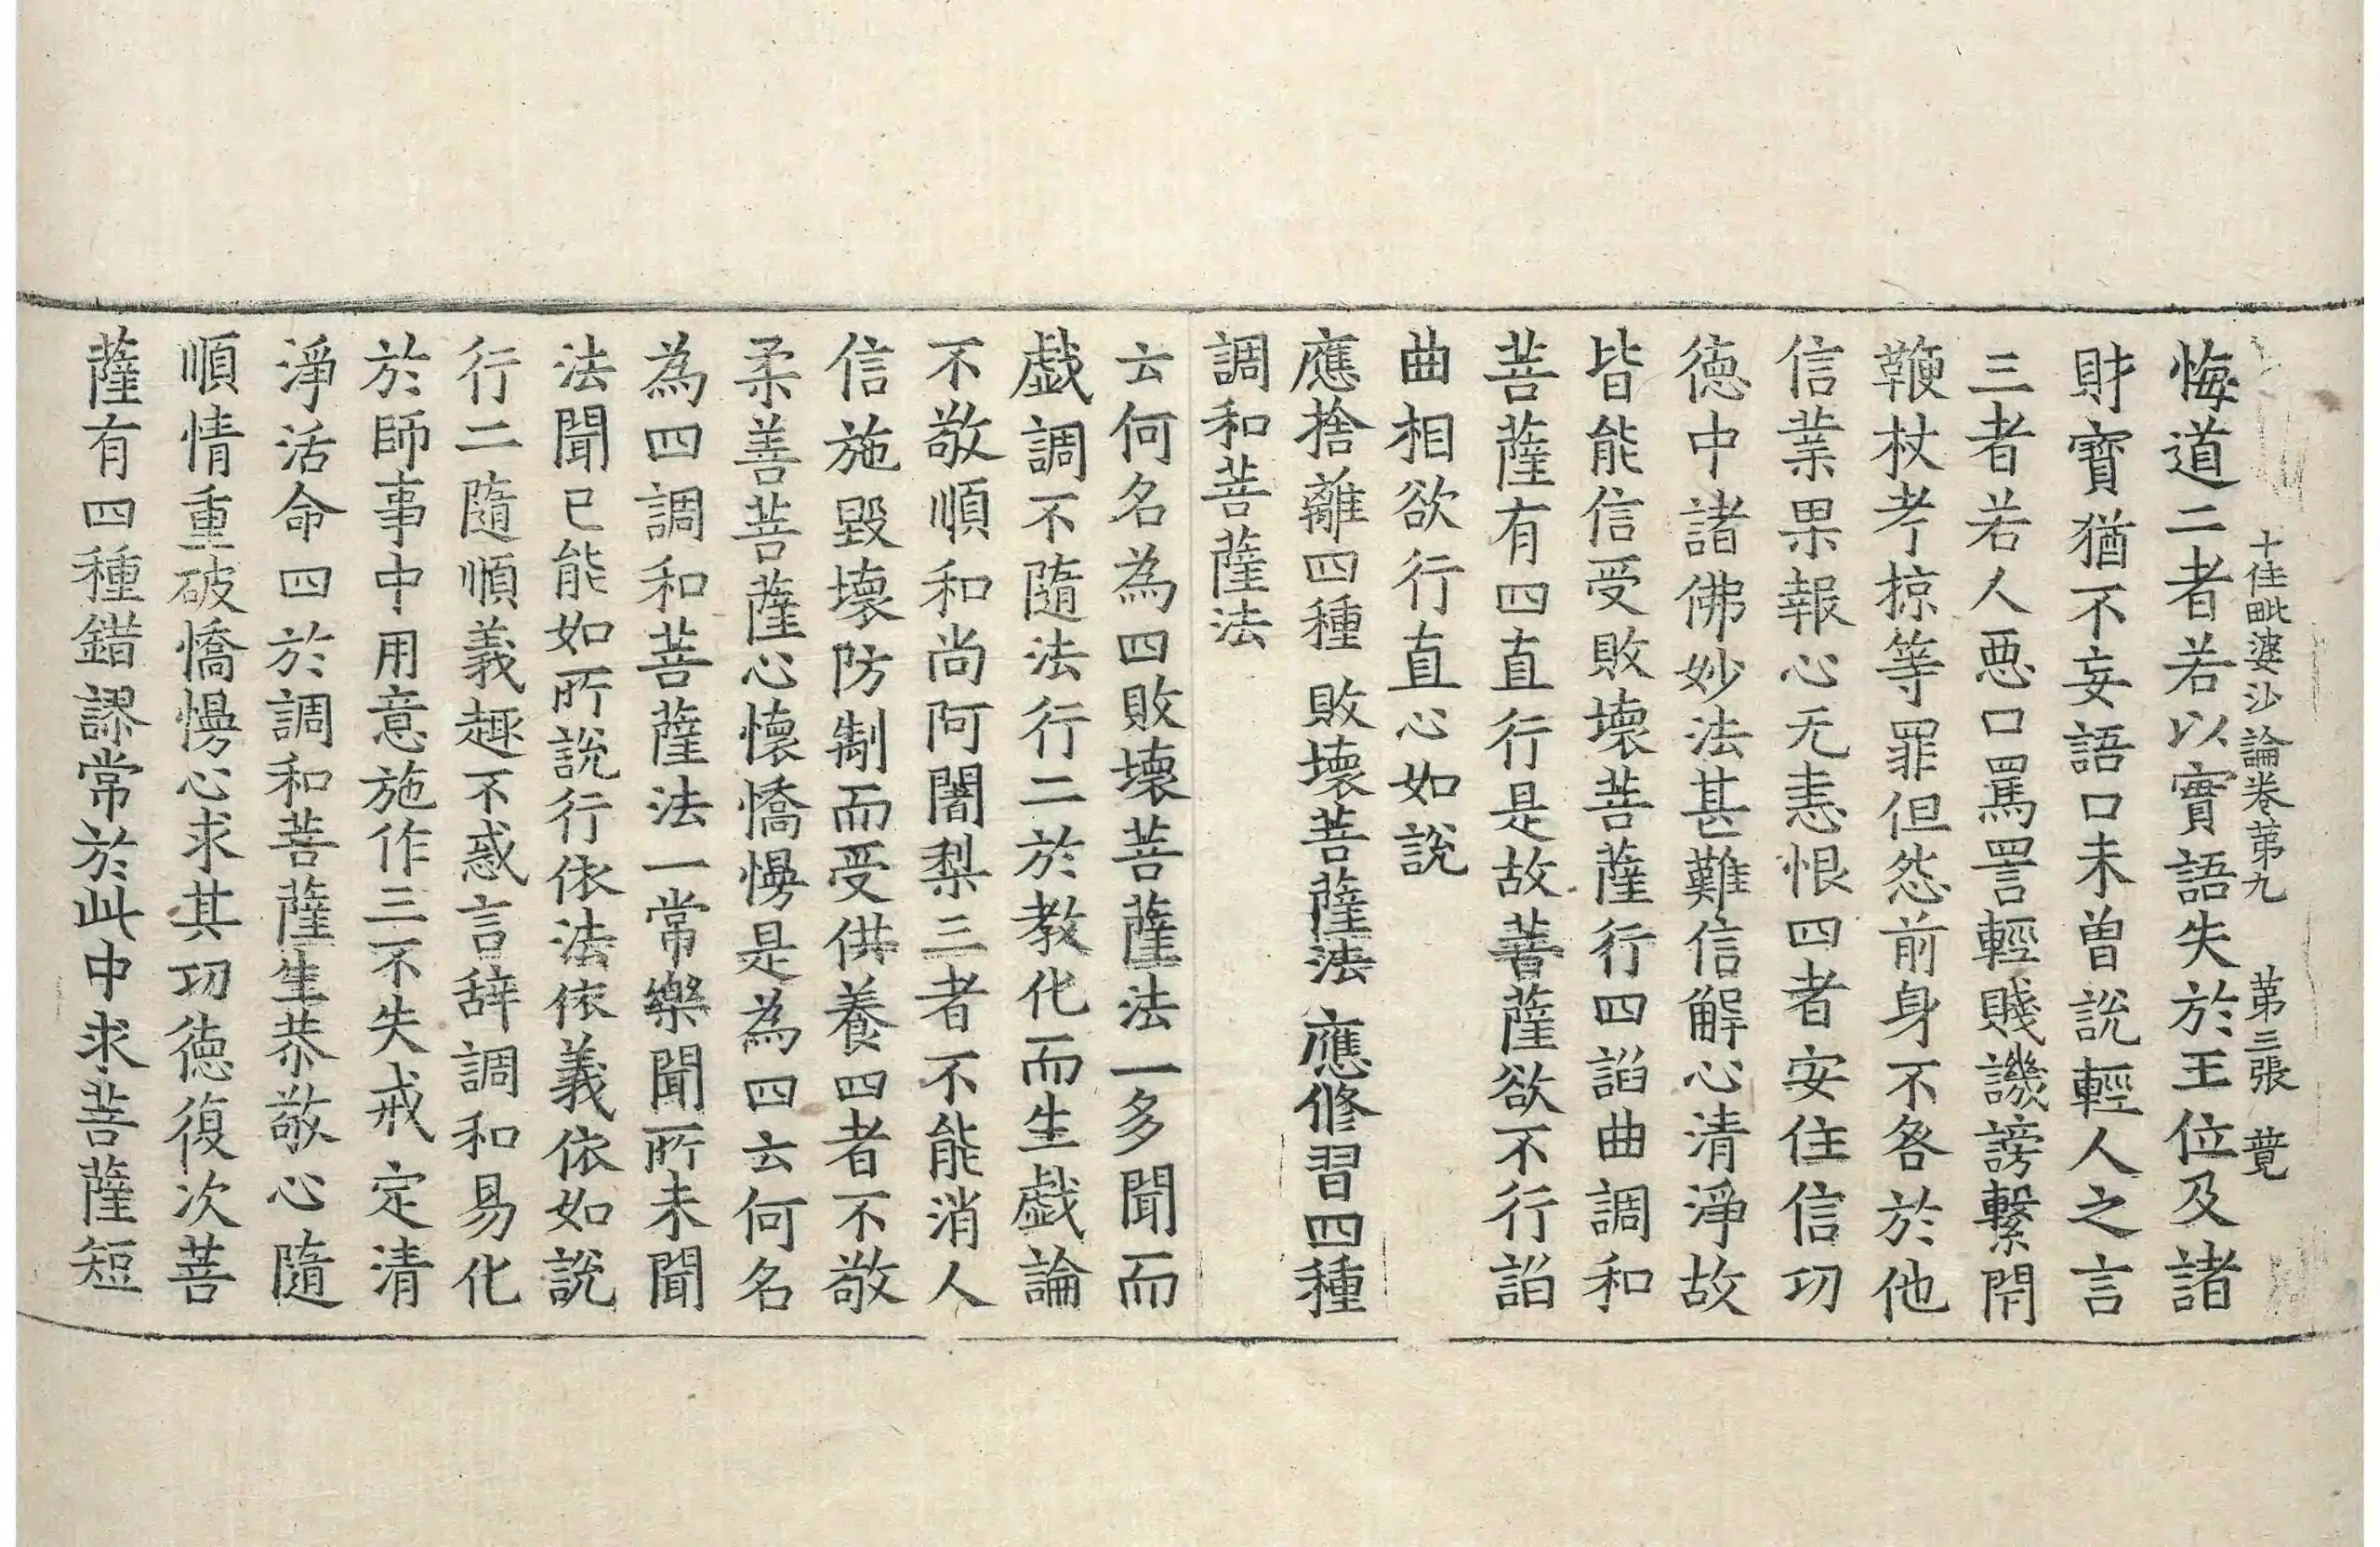 十住毗婆沙論卷苐九　苐三張　蕡
悔道二者若以實語失於王位及諸
財寶猶不妄語口未曽說輕人之言
三者若人惡口罵詈輕賤譏謗繫閇
鞭杖考掠等罪但怨前身不咎於他
信業果報心无恚恨四者安住信功
德中諸佛妙法甚難信解心清淨故
皆能信受敗壞菩薩行四諂曲調和
菩薩有四直行是故菩薩欲不行諂
曲相欲行直心如說
應捨離四種　敗壞菩薩法　應修習四種
調和菩薩法
云何名為四敗壞菩薩法一多聞而
戱調不隨法行二於教化而生戱論
不敬順和尚阿闍梨三者不能消人
信施毀壞防制而受供養四者不敬
柔善菩薩心懷憍慢是為四云何名
為四調和菩薩法一常樂聞所未聞
法聞已能如所說行依法依義依如說
行二隨順義趣不惑言辞調和易化
於師事中用意施作三不失戒定清
淨活命四於調和菩薩生恭敬心隨
順情重破憍慢心求其功德復次菩
薩有四種錯謬常於此中求菩薩短